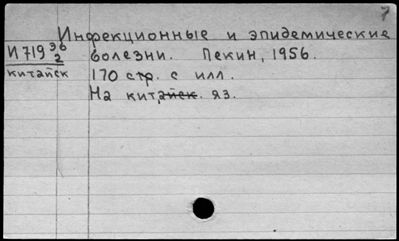 7
Инфекционные и эпидемические
И719 36/2 болезни. Пекин, 1956.
китайск 170 стр. с илл.
На китайск. яз.